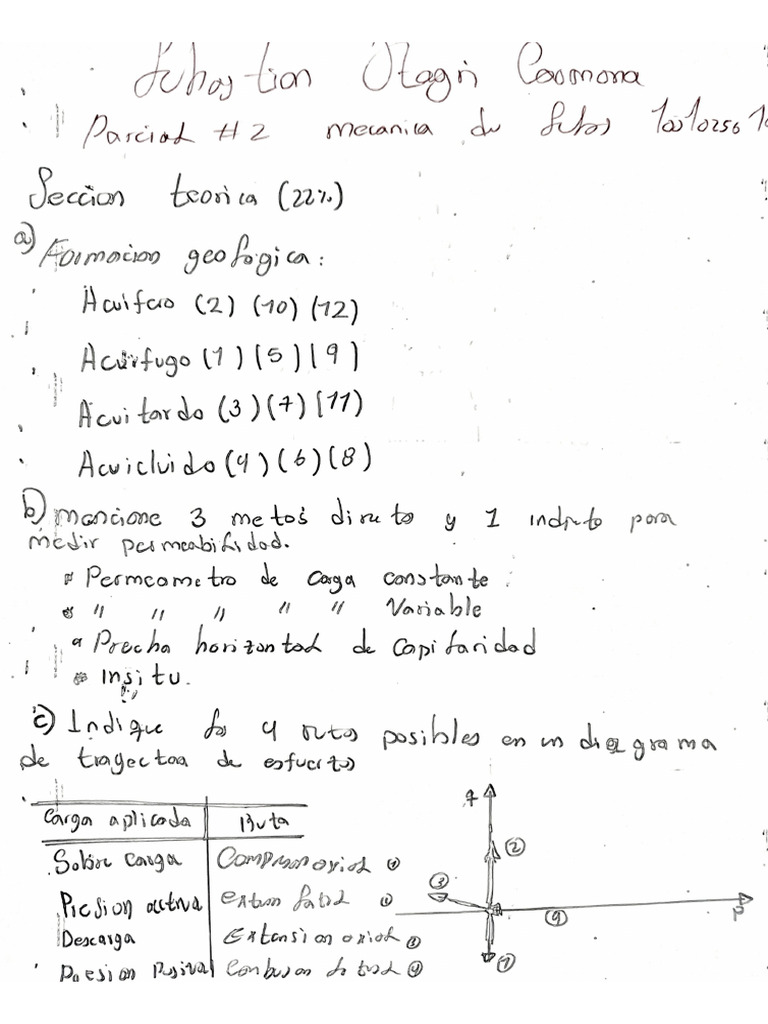 Parcial #2 mecanica de
Seccion teorica (22%)
a) Formacion geologica:
Acuifero (2) (10) (12)
Acuifugo (1) (5) (9)
Acuitardo (3) (7) (11)
Acuicluido (4) (6) (8)
b) mencione 3 metos directos y 1 indirto para
medir permeabilidad.
Permeametro de carga constante
" " " " " Variable
Prueba horizontal de capilaridad
Insitu.
c) Indique las 4 rutas posibles en un diagrama
de trayectoa de esfuerzos
Carga aplicada Ruta
Sobre carga Compresion axial
Presion activa
Descarga Extension axial
Presion Pasiva
q
2
3
4
p
1